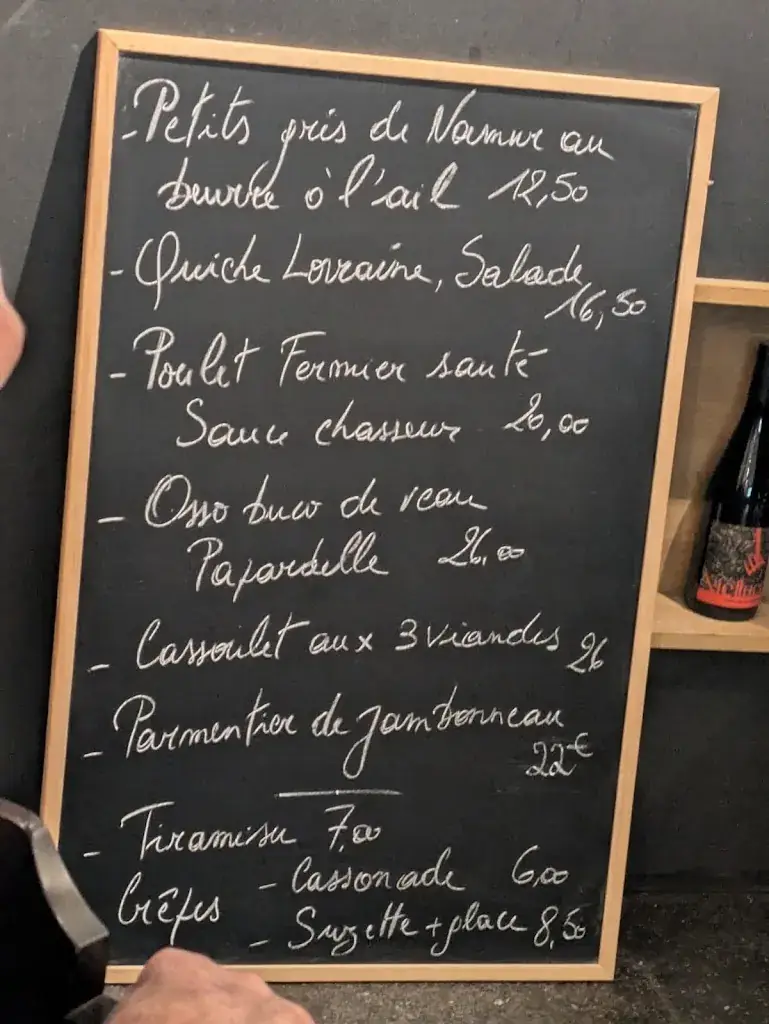 - Petits gris de Namur au
beurre à l'ail 12,50
- Quiche Lorraine, Salade
16,50
- Poulet Fermier sauté
Sauce chasseur 20,00
- Osso buco de veau
Papardelle 26,00
- Cassoulet aux 3 viandes 26
- Parmentier de Jambonneau
22€
- Tiramisu 7,00
Crêpes - Cassonade 6,00
- Suzette + glace 8,50